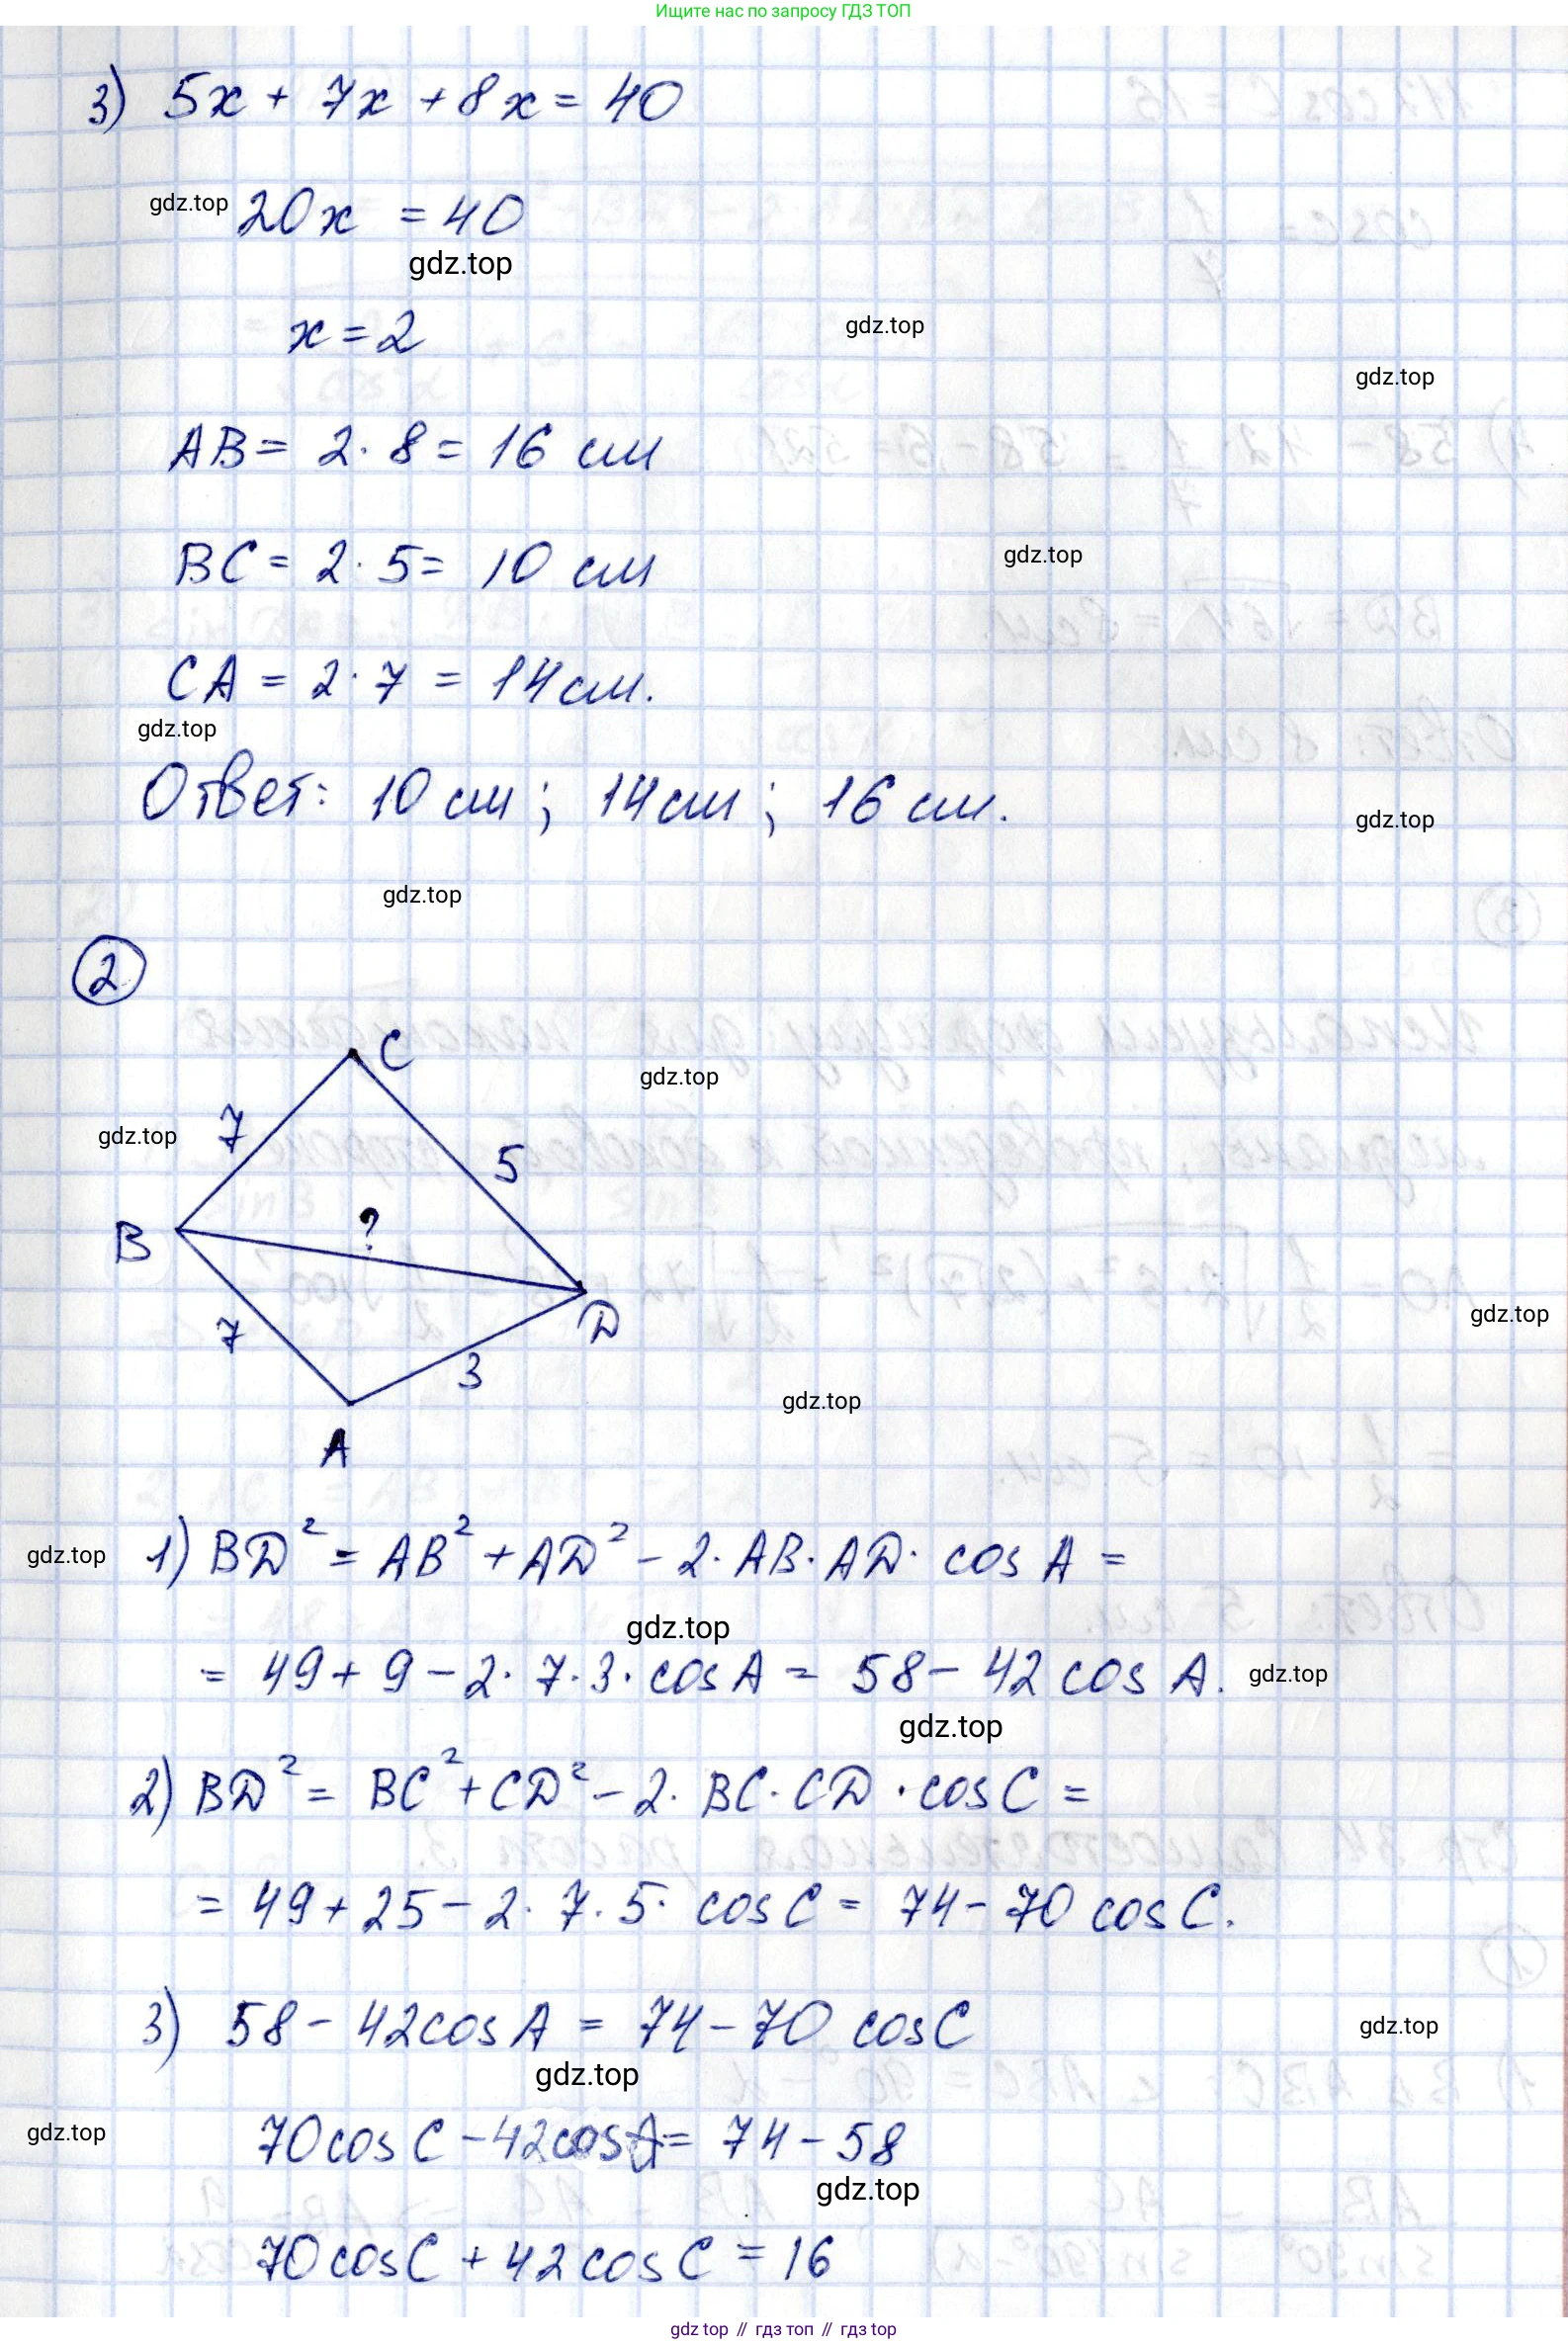 Ищите нас по запросу ГДЗ ТОП
3) 5x + 7x + 8x = 40
gdz.top 20x = 40
gdz.top
x = 2
gdz.top
gdz.top
AB = 2 · 8 = 16 см
BC = 2 · 5 = 10 см
gdz.top
CA = 2 · 7 = 14 см.
gdz.top
Ответ: 10 см ; 14 см ; 16 см.
gdz.top
gdz.top
2
C
gdz.top
7
gdz.top
5
B
?
gdz.top
D
7
3
gdz.top
A
1) BD² = AB² + AD² - 2 · AB · AD · cos A =
gdz.top
gdz.top
= 49 + 9 - 2 · 7 · 3 · cos A = 58 - 42 cos A.
gdz.top
gdz.top
2) BD² = BC² + CD² - 2 · BC · CD · cos C =
= 49 + 25 - 2 · 7 · 5 · cos C = 74 - 70 cos C.
3) 58 - 42 cos A = 74 - 70 cos C
gdz.top
gdz.top
gdz.top
70 cos C - 42 cos A = 74 - 58
gdz.top
70 cos C + 42 cos C = 16
gdz top // гдз топ // гдз top